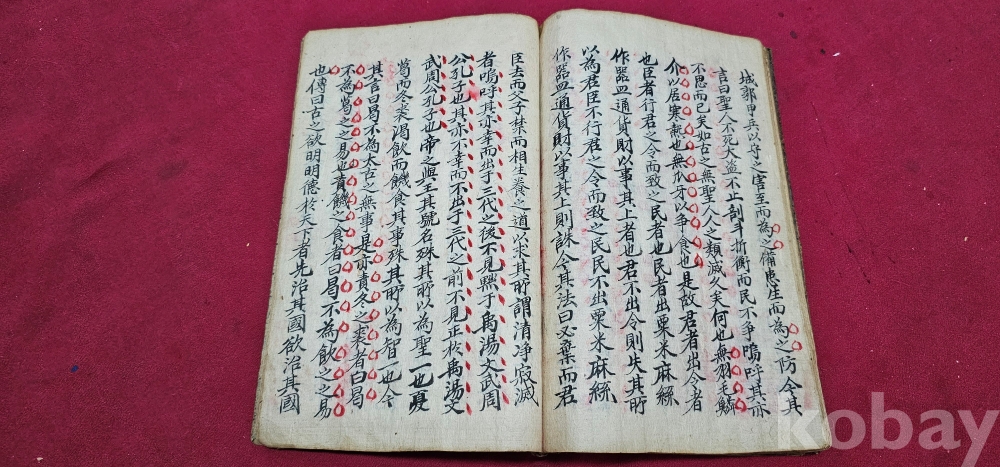 城郭甲兵以守之害至而為之備患生而為之防今其
言曰聖人不死大盜不止剖斗折衡而民不爭嗚呼其亦
不思而已矣如古之無聖人人之類滅久矣何也無羽毛鱗
介以居寒熱也無爪牙以爭食也是故君者出令者
也臣者行君之令而致之民者也民者出粟米麻絲
作器皿通貨財以事其上者也君不出令則失其所
以為君臣不行君之令而致之民民不出粟米麻絲
作器皿通貨財以事其上則誅今其法曰必棄而君
臣去而父子禁而相生養之道以求其所謂清淨寂滅
者嗚呼其亦幸而出于三代之後不見黜于禹湯文武周
公孔子也其亦不幸而不出于三代之前不見正於禹湯文
武周公孔子也帝之與王其號名殊其所以為聖一也夏
葛而冬裘渴飲而饑食其事殊其所以為智一也今
其言曰曷不為太古之無事是亦責冬之裘者曰曷
不為葛之之易也責饑之食者曰曷不為飲之之易
也傳曰古之欲明明德於天下者先治其國欲治其國
kobay